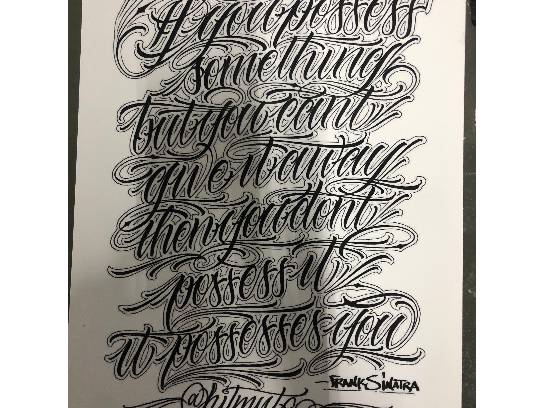 If you possess
something
but you cant
give it away
then you dont
possess it
it possesses you
-FRANK SINATRA